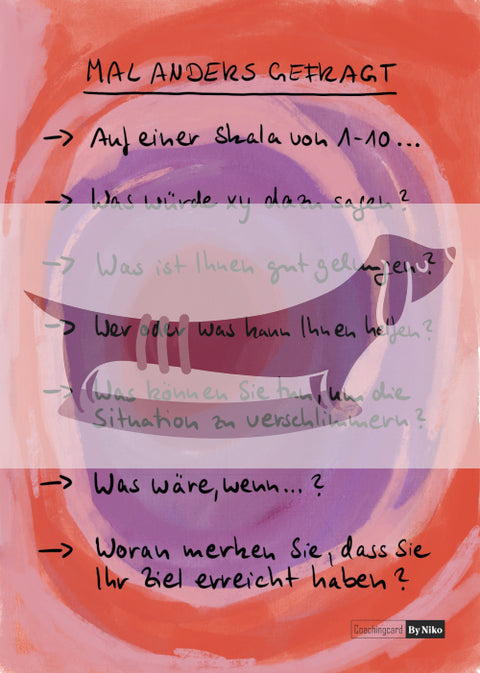 MAL ANDERS GEFRAGT
→ Auf einer Skala von 1-10...
→ Was würde xy dazu sagen?
→ Was ist Ihnen gut gelungen?
→ Wer oder was kann Ihnen helfen?
→ Was können Sie tun, um die
Situation zu verschlimmern?
→ Was wäre, wenn...?
→ Woran merken Sie, dass Sie
Ihr Ziel erreicht haben?
Coachingcard By Niko